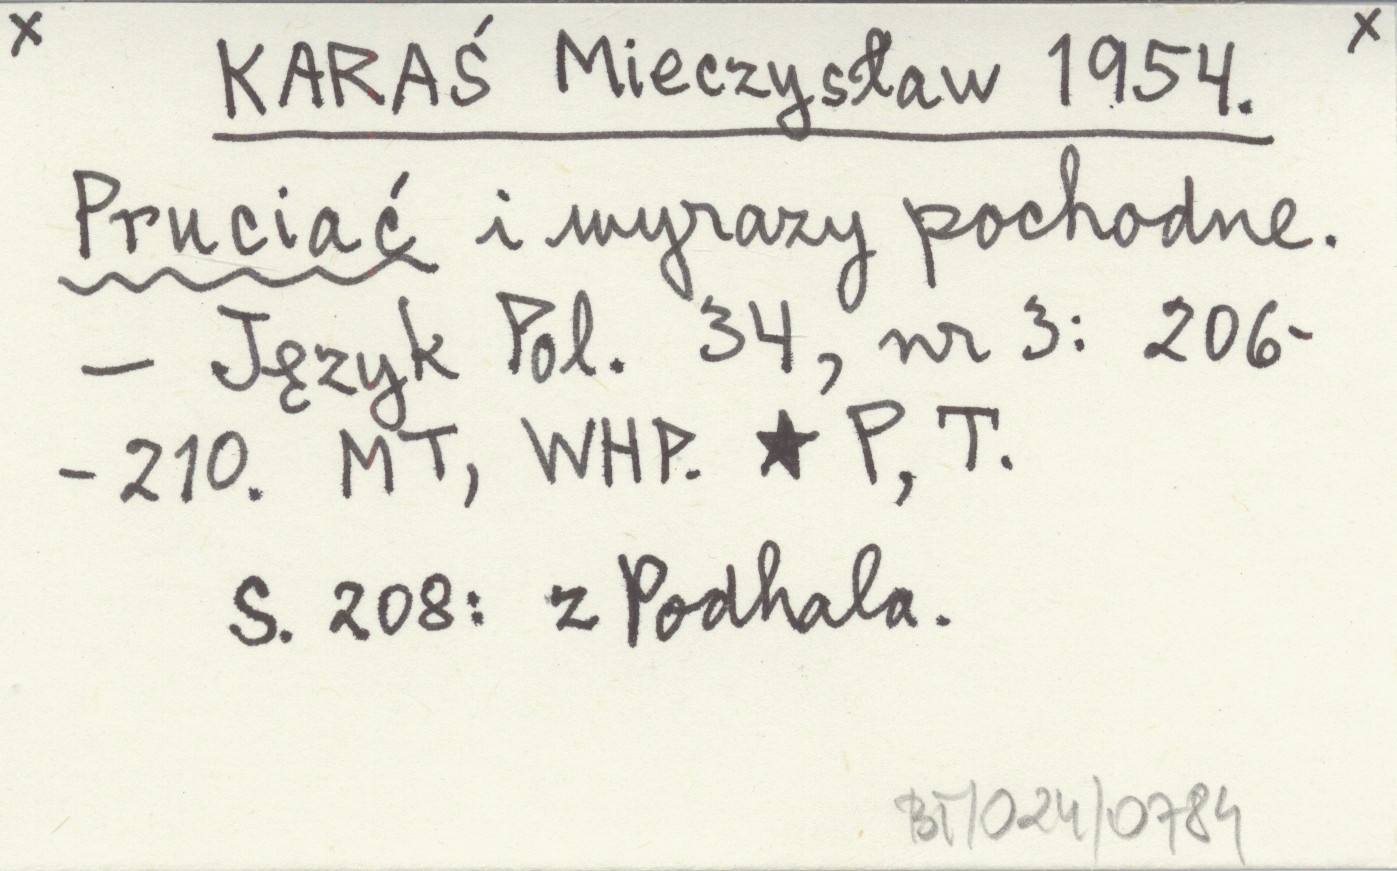 x x
KARAŚ Mieczysław 1954.
Pruciać i wyrazy pochodne.
— Język Pol. 34, nr 3: 206-
-210. MT, WHP. ★ P, T.
S. 208: z Podhala.
BT/024/0784